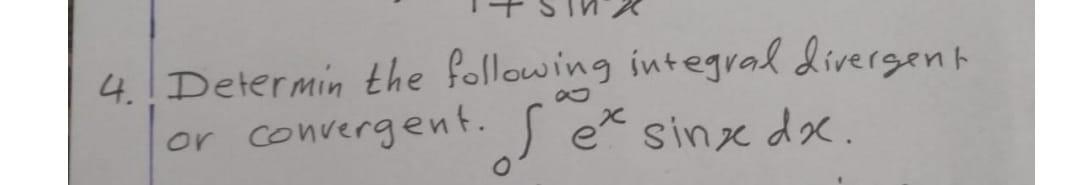 1 + sin x
4. Determin the following integral divergent
or convergent. ∫₀^∞ e^x sinx dx.